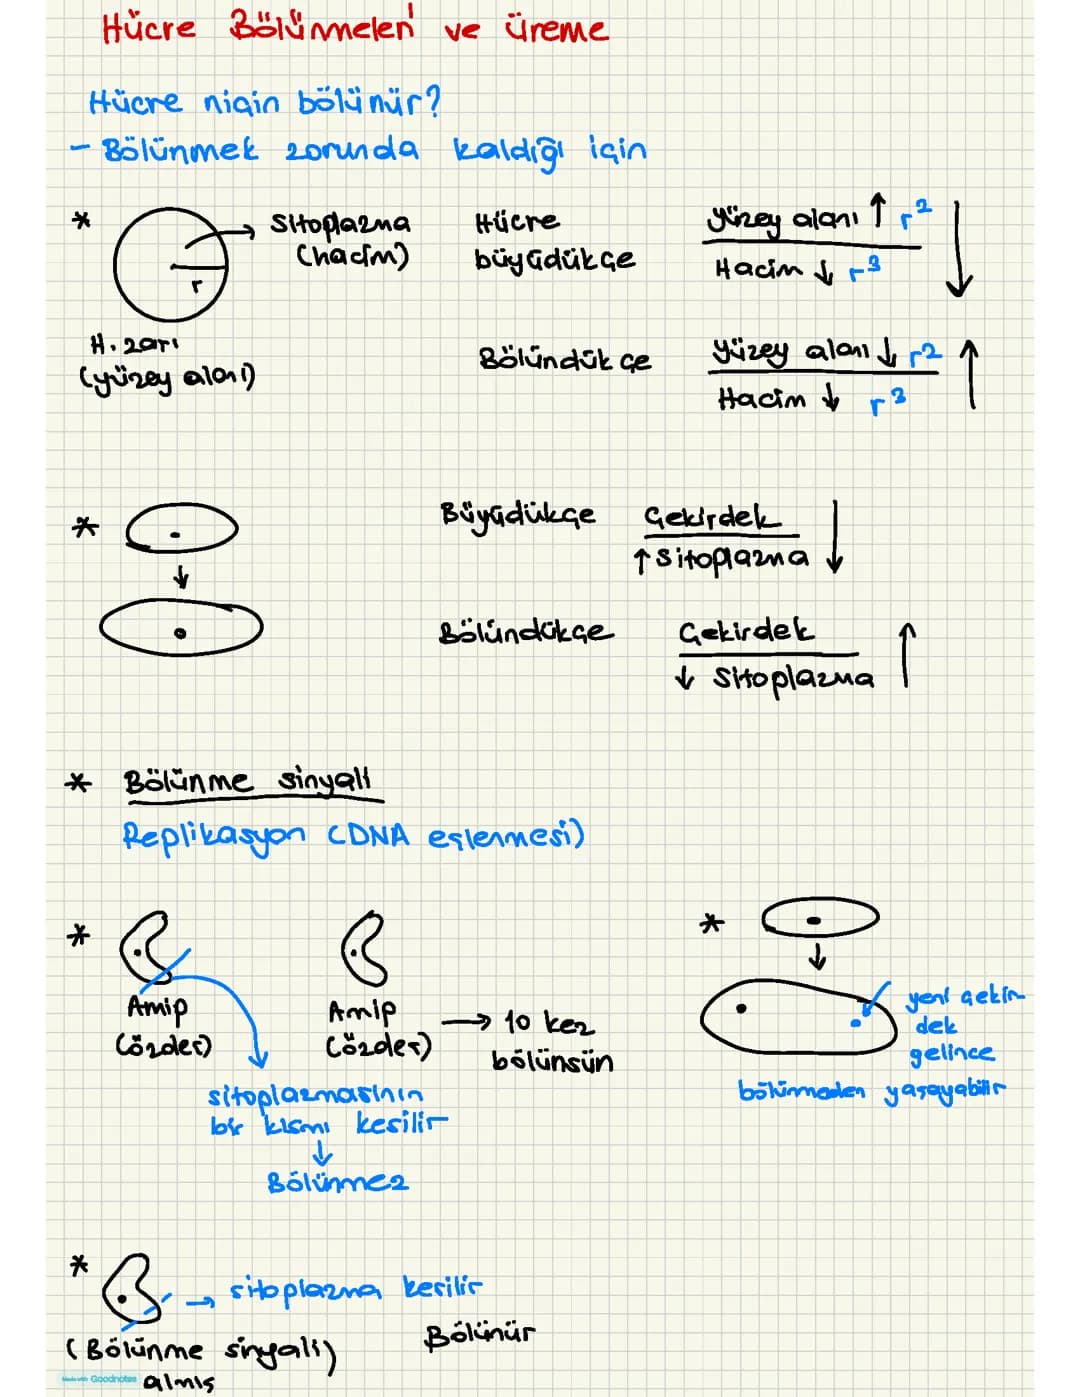 Hücre Bölünmeleri ve üreme
Hücre niçin bölünür?
- Bölünmek zorunda kaldığı için
* Sitoplazma
(hacim)
r
H. zarı
(yüzey alanı)
Hücre
büyüdükçe
Yüzey alanı ↑ r²
Hacim ↓ r³
Bölündükçe
Yüzey alanı ↓ r²
Hacim ↓ r³
* Büyüdükçe
Çekirdek
↑ Sitoplazma
Bölündükçe
Çekirdek
↓ Sitoplazma
* Bölünme sinyali
Replikasyon (DNA eşlenmesi)
*
Amip
(özdeş)
sitoplazmasının
bir kısmı kesilir
↓
Bölünmez
Amip
(özdeş)
→ 10 kez
bölünsün
*
yeni çekir-
dek
gelince
bölünmeden yaşayabilir
*
→ sitoplazma kesilir
Bölünür
(Bölünme sinyali)
almış
Made with Goodnotes